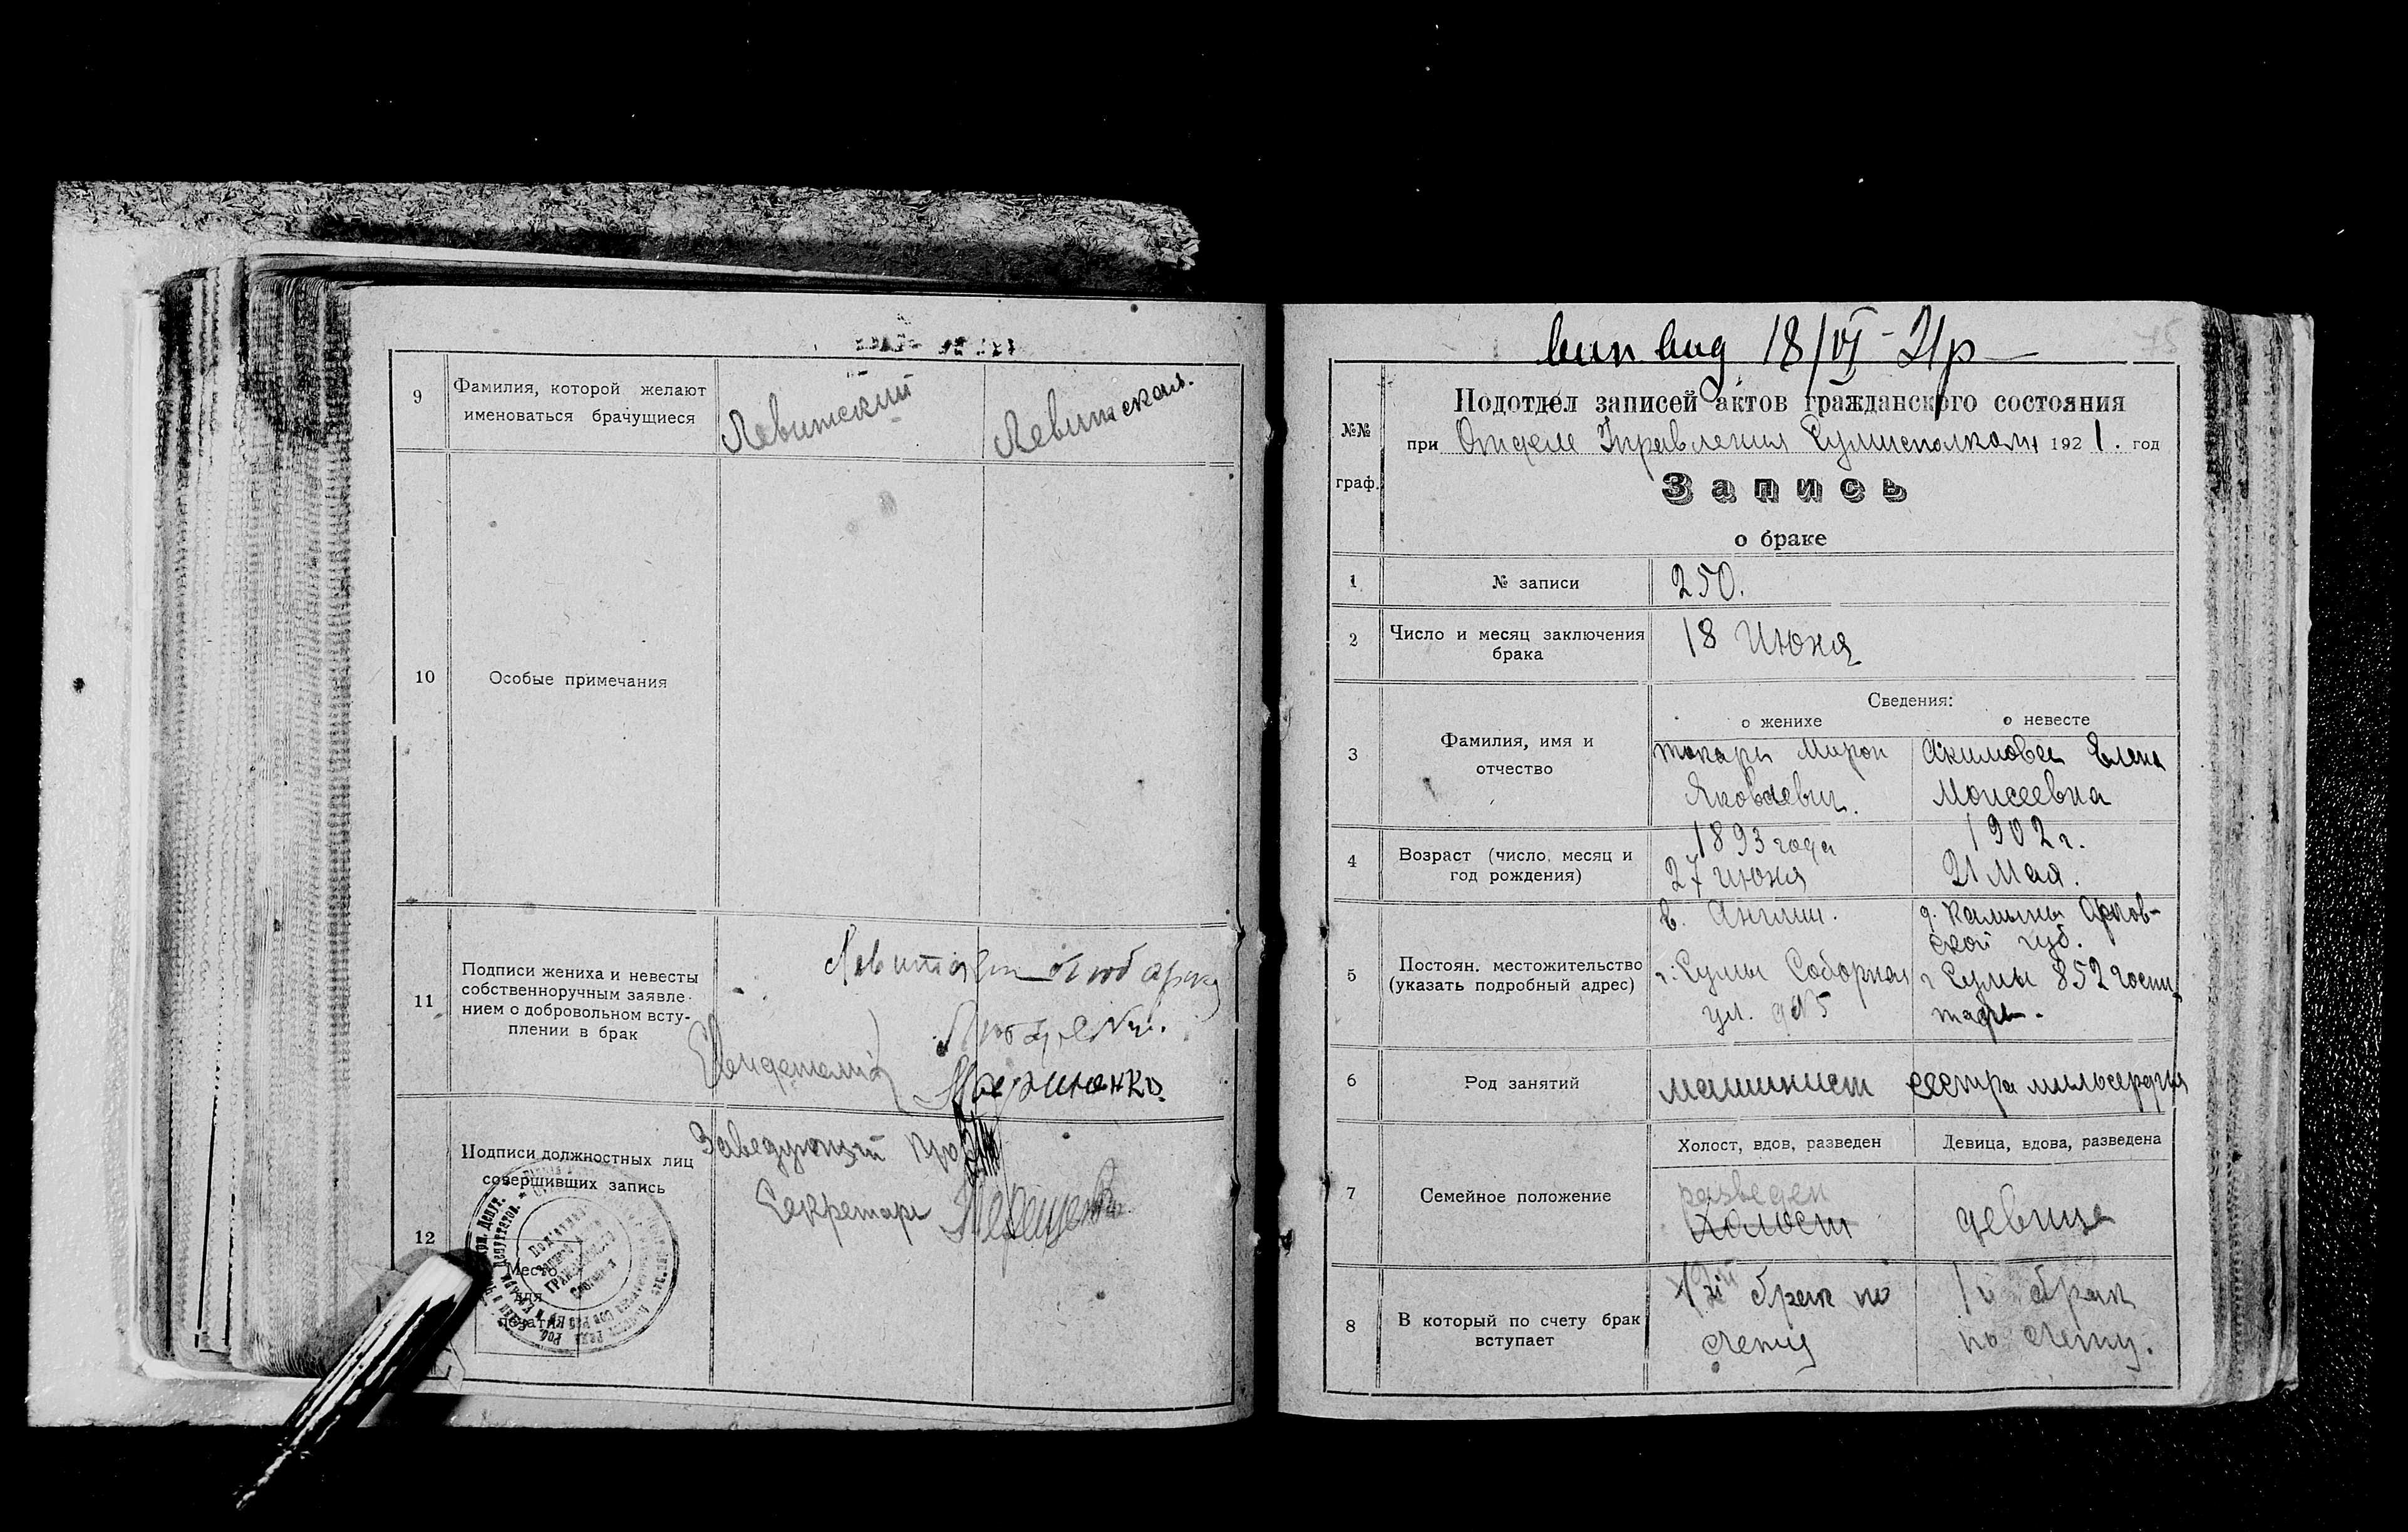 9
Фамилия, которой желают
именоваться брачущиеся
Левитский
Левитская.
10
Особые примечания
11
Подписи жениха и невесты
собственноручным заявле-
нием о добровольном всту-
плении в брак
Свидетели
12
Подписи должностных лиц
совершивших запись
Заведующий
Секретарь Терещенко
Место
для
печати
18/VI - 21р
№№
граф.
Подотдел записей актов гражданского состояния
при Отделе Управления Сумисполкома 1921. год
Запись
о браке
1
№ записи
250.
2
Число и месяц заключения
брака
18 Июня
Сведения:
о женихе
о невесте
3
Фамилия, имя и
отчество
Токарь Мирон
Яковлевич.
Акимовец Елена
Моисеевна
4
Возраст (число, месяц и
год рождения)
1893 года
27 июня
1902 г.
21 Мая.
5
Постоян. местожительство
(указать подробный адрес)
в. Англии.
г. Сумы Соборная
ул. д № 5
ской губ.
г Сумы 852 госпи
таль.
6
Род занятий
машинист
сестра милосердия
7
Семейное положение
Холост, вдов, разведен
разведен
холост
Девица, вдова, разведена
девица
8
В который по счету брак
вступает
брак по
счету
1й брак
по счету.